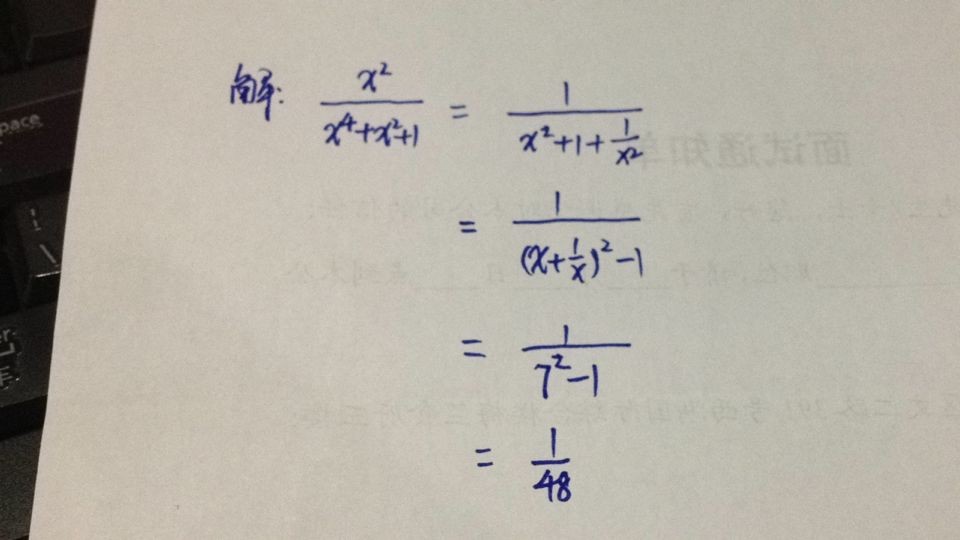 解: x²/(x⁴+x²+1) = 1/(x²+1+1/x²)
= 1/((x+1/x)²-1)
= 1/(7²-1)
= 1/48
pace